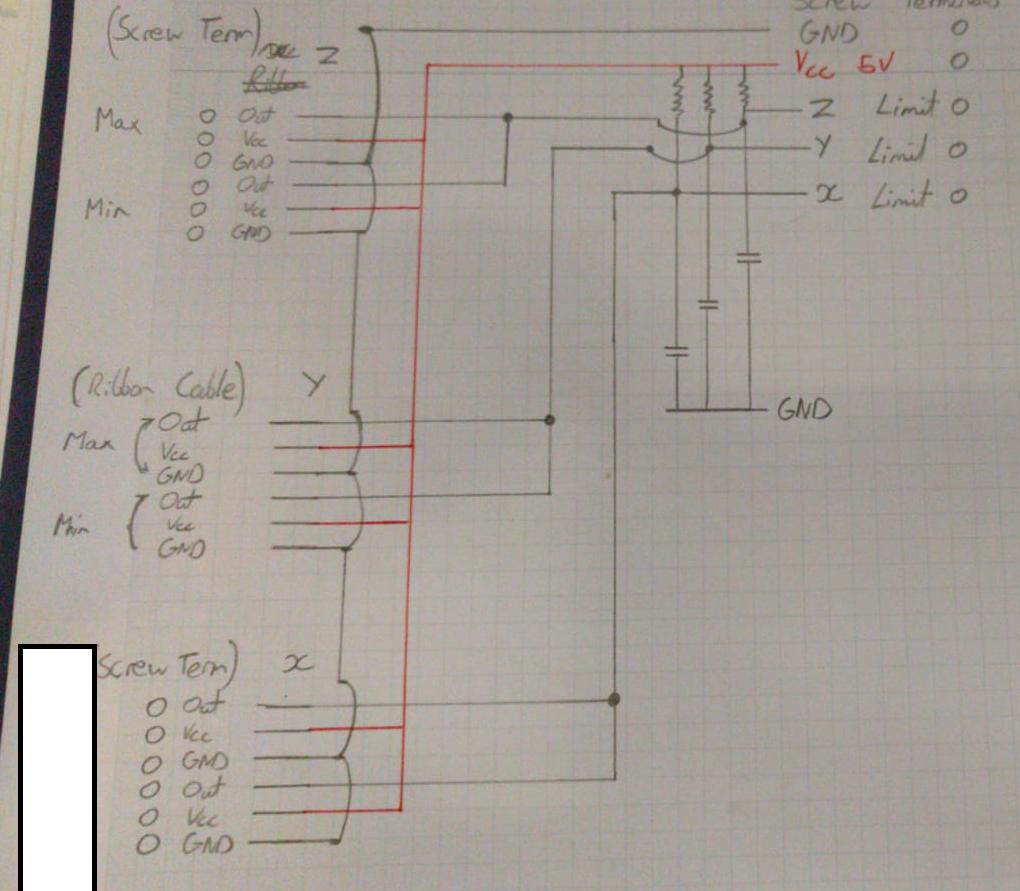 Screw Terminals
(Screw Term) Z
GND
Vcc 5V
Max
Out
Vcc
GND
Z Limit
Y Limit
Min
Out
Vcc
GND
x Limit
(Ribbon Cable) Y
GND
Max
Out
Vcc
GND
Min
Out
Vcc
GND
Screw Term) x
Out
Vcc
GND
Out
Vcc
GND